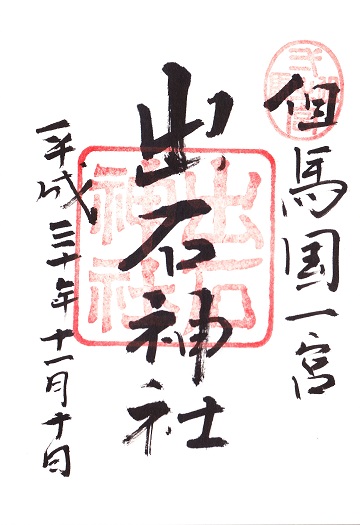 但馬国一宮
出石神社
平成三十年十一月十日
出石神社